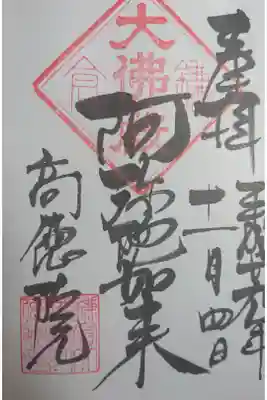 奉拝
平成年
十一月四日
大佛殿
鎌倉
阿弥陀如来
高徳院